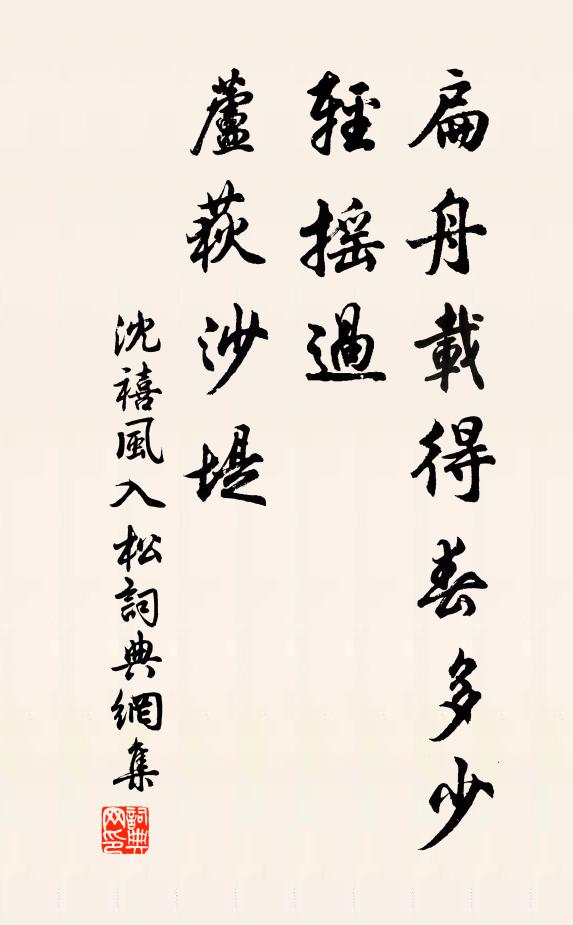 扁舟載得春多少
輕摇過
蘆荻沙堤
沈禧風入松詞典網集
詞典网印